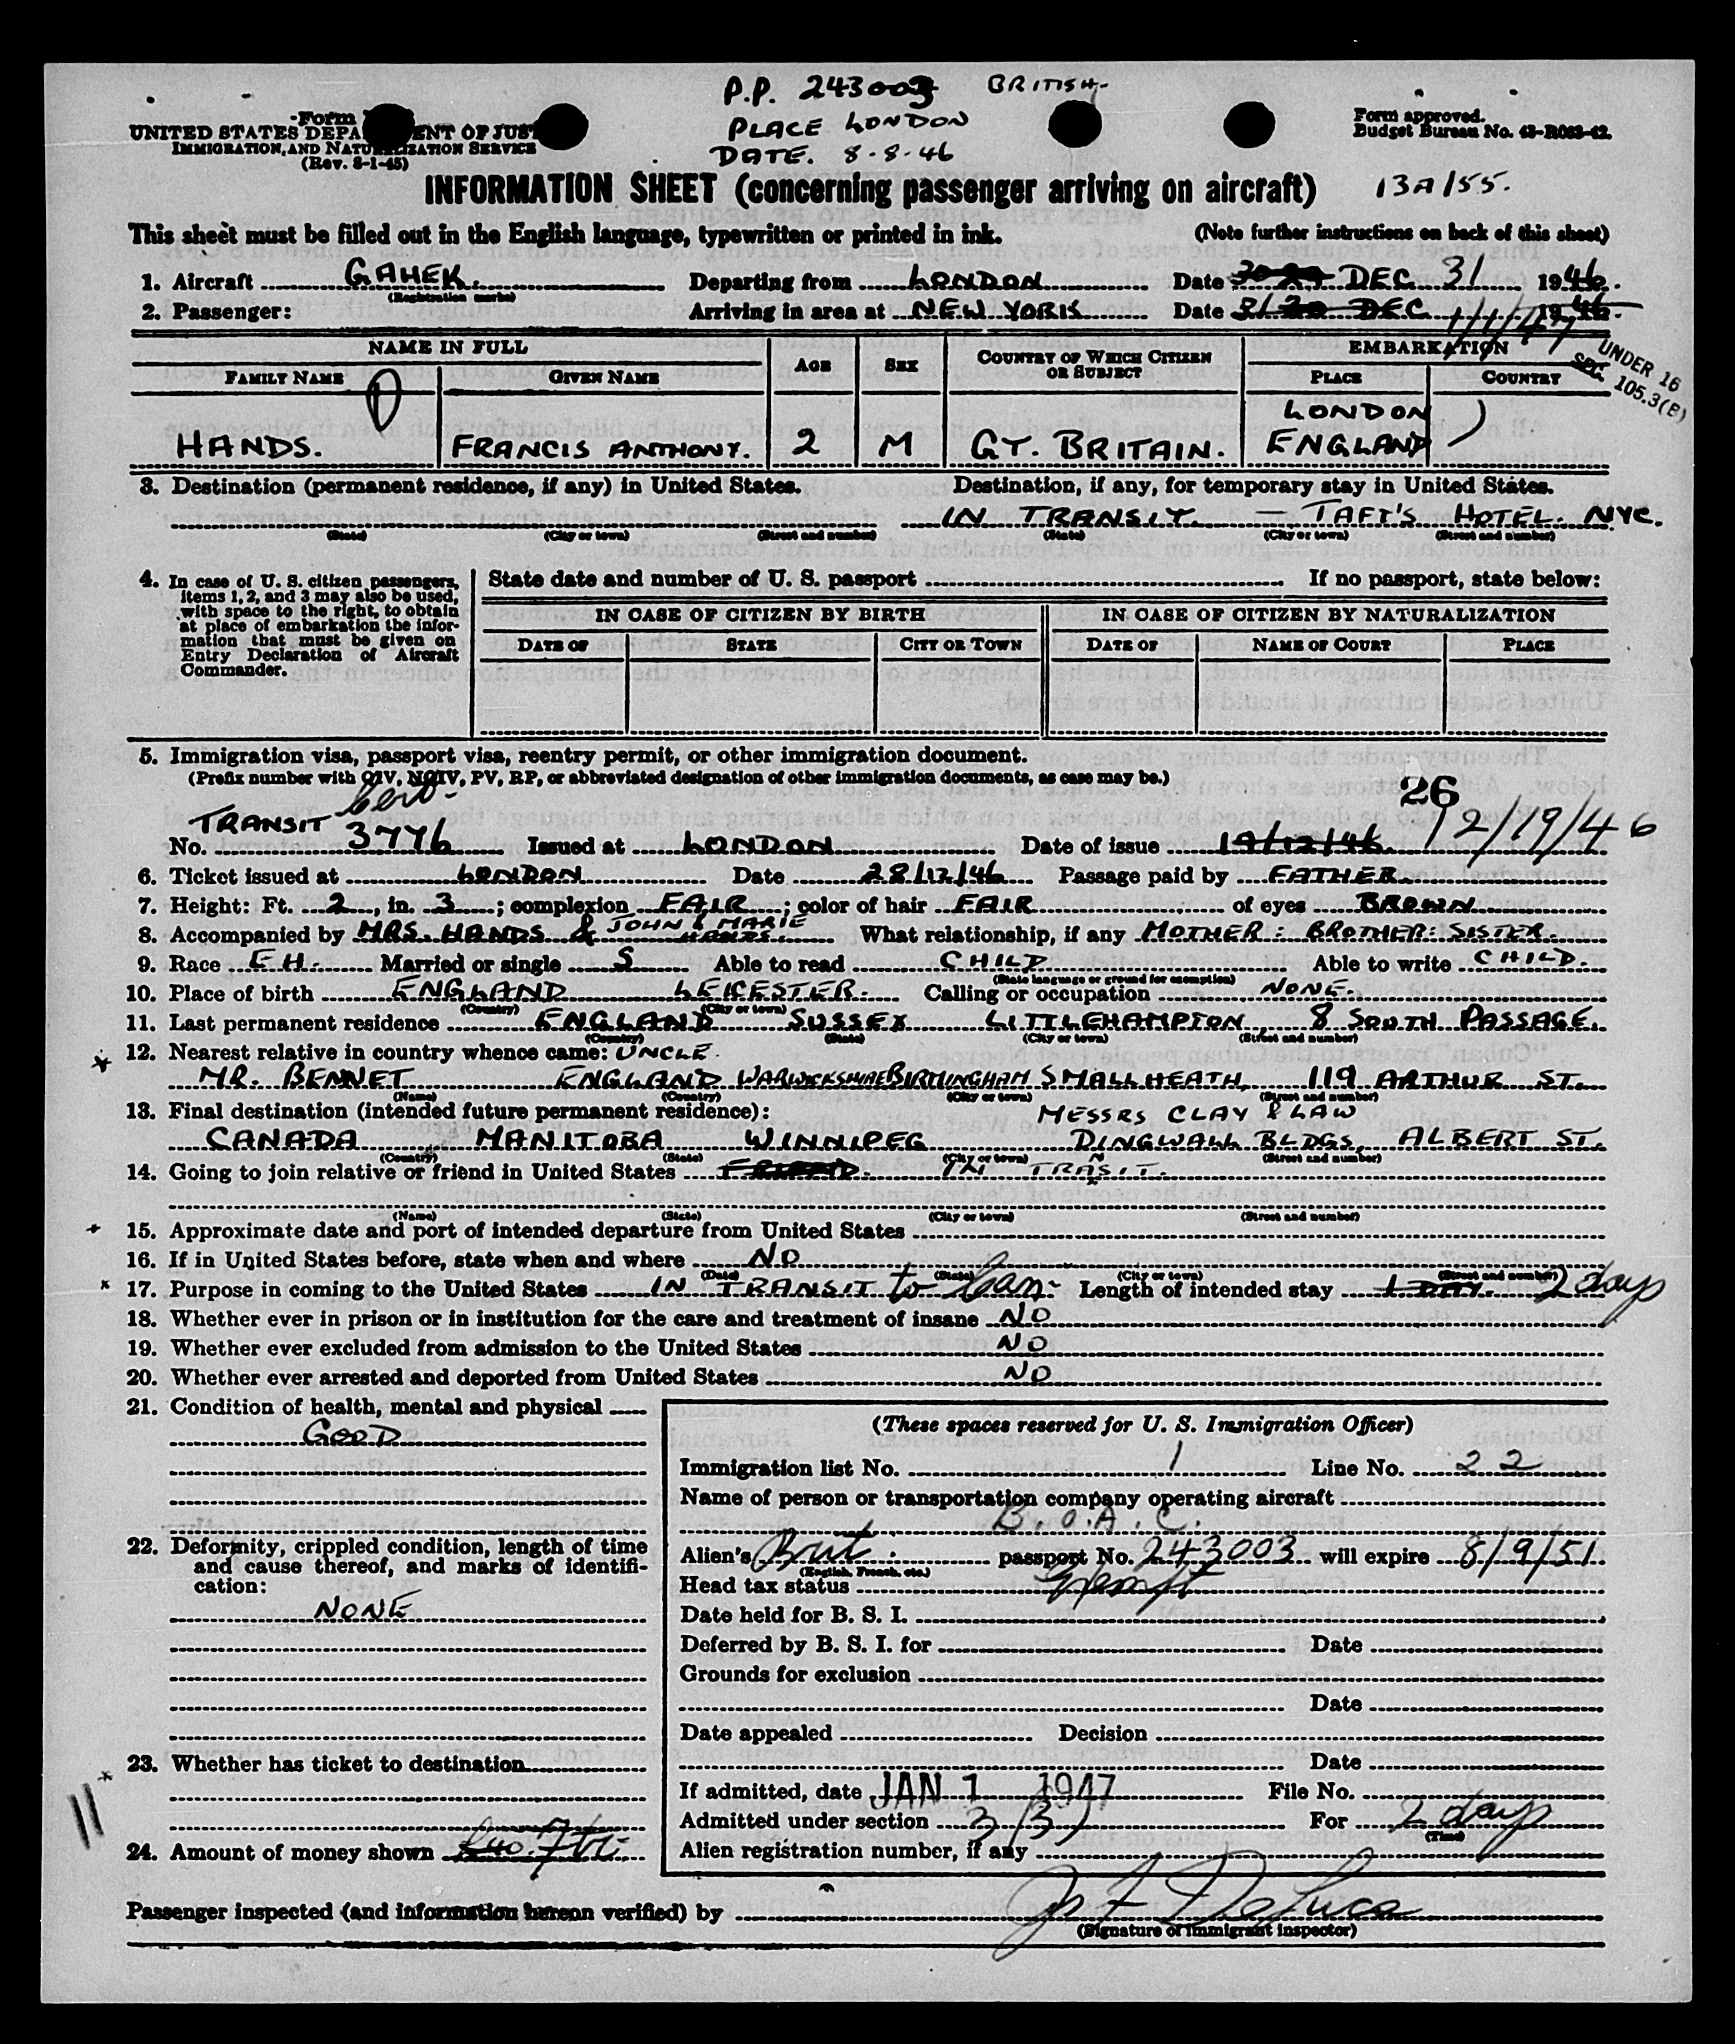 P.P. 243003 BRITISH.
PLACE LONDON
DATE. 8-8-46
Form
UNITED STATES DEPA ENT OF JUS
IMMIGRATION, AND NATURALIZATION SERVICE
(Rev. 8-1-45)
Form approved.
Budget Bureau No. 43-R063-42.
INFORMATION SHEET (concerning passenger arriving on aircraft) 13A/55.
This sheet must be filled out in the English language, typewritten or printed in ink. (Note further instructions on back of this sheet)
1. Aircraft GAHEK. Departing from LONDON Date DEC 31 1946.
(Registration marks)
2. Passenger: Arriving in area at NEW YORK Date DEC 1/1/47 1946.
NAME IN FULL AGE SEX COUNTRY OF WHICH CITIZEN OR SUBJECT EMBARKATION
FAMILY NAME GIVEN NAME PLACE COUNTRY
UNDER 16
SEC. 105.3(B)
HANDS. FRANCIS ANTHONY. 2 M GT. BRITAIN. LONDON ENGLAND
3. Destination (permanent residence, if any) in United States. Destination, if any, for temporary stay in United States.
IN TRANSIT. — TAFT'S HOTEL. NYC.
(State) (City or town) (Street and number) (State) (City or town) (Street and number)
4. In case of U. S. citizen passengers, items 1, 2, and 3 may also be used, with space to the right, to obtain at place of embarkation the information that must be given on Entry Declaration of Aircraft Commander.
State date and number of U. S. passport If no passport, state below:
IN CASE OF CITIZEN BY BIRTH IN CASE OF CITIZEN BY NATURALIZATION
DATE OF STATE CITY OR TOWN DATE OF NAME OF COURT PLACE
5. Immigration visa, passport visa, reentry permit, or other immigration document.
(Prefix number with QIV, NQIV, PV, RP, or abbreviated designation of other immigration documents, as case may be.)
26
TRANSIT Cert- 12/19/46
No. 3776 Issued at LONDON Date of issue 19/12/46.
6. Ticket issued at LONDON Date 28/12/46 Passage paid by FATHER.
7. Height: Ft. 2, in. 3; complexion FAIR; color of hair FAIR of eyes BROWN
8. Accompanied by MRS. HANDS & JOHN & MARIE HANDS. What relationship, if any MOTHER: BROTHER: SISTER.
9. Race EH. Married or single S Able to read CHILD Able to write CHILD.
(State language or ground for exemption)
10. Place of birth ENGLAND LEICESTER. Calling or occupation NONE.
(Country) (City or town)
11. Last permanent residence ENGLAND SUSSEX LITTLEHAMPTON 8 SOUTH PASSAGE.
(Country) (State) (City or town) (Street and number)
12. Nearest relative in country whence came: UNCLE.
MR. BENNET ENGLAND WARWICKSHIRE BIRMINGHAM SMALLHEATH, 119 ARTHUR ST.
(Name) (Country) (City or town) (Street and number)
13. Final destination (intended future permanent residence): MESSRS CLAY & LAW
CANADA MANITOBA WINNIPEG DINGWALL BLDGS, ALBERT ST.
(Country) (State) (City or town) (Street and number)
14. Going to join relative or friend in United States FRIEND. IN TRANSIT.
(Name) (State) (City or town) (Street and number)
15. Approximate date and port of intended departure from United States
16. If in United States before, state when and where NO
(Date) (State) (City or town) (Street and number)
17. Purpose in coming to the United States IN TRANSIT to Can- Length of intended stay 1 DAY. 2 days
18. Whether ever in prison or in institution for the care and treatment of insane NO
19. Whether ever excluded from admission to the United States NO
20. Whether ever arrested and deported from United States NO
21. Condition of health, mental and physical
GOOD
22. Deformity, crippled condition, length of time and cause thereof, and marks of identification:
NONE
23. Whether has ticket to destination
24. Amount of money shown
(These spaces reserved for U. S. Immigration Officer)
Immigration list No. 1 Line No. 22
Name of person or transportation company operating aircraft
B.O.A.C.
Alien's Brit. passport No. 243003 will expire 8/9/51
(English, French, etc.)
Head tax status Exempt
Date held for B. S. I.
Deferred by B. S. I. for Date
Grounds for exclusion
Date
Date appealed Decision
Date
If admitted, date JAN 1 1947 File No.
Admitted under section 3(3) For 2 days
(Time)
Alien registration number, if any
Passenger inspected (and information hereon verified) by DeLuca
(Signature of immigrant inspector)